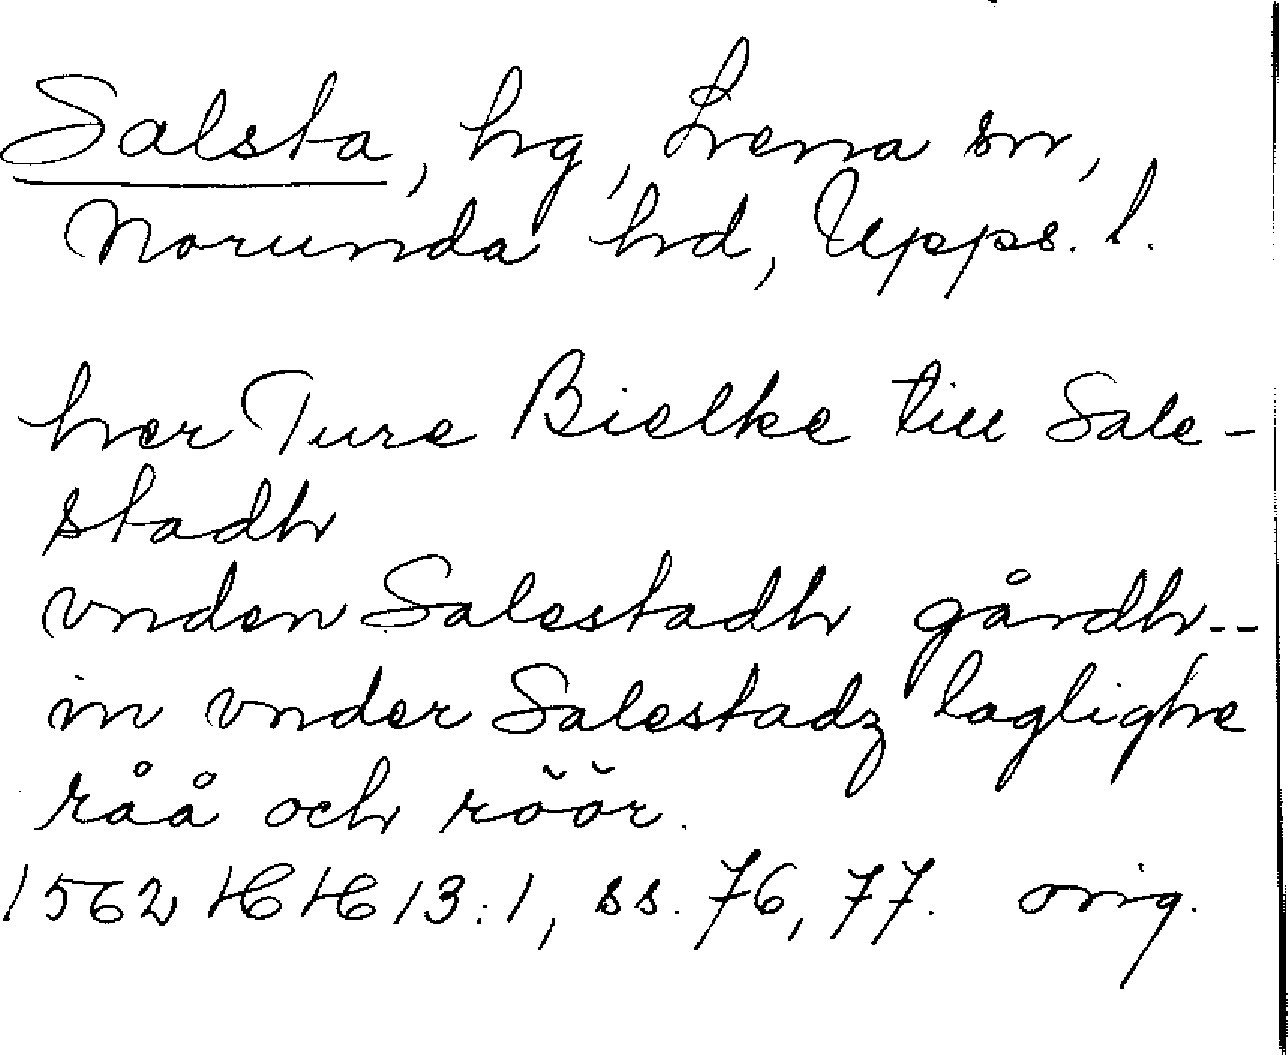 Salsta, hg, Lena sn,
Norunda hd, Upps. l.
her Ture Bielke till Sale-
stadh
vnden Salestadh gårdh--
in vnder Salestadz laglighe
råå och röör.
1562 HH 13:1, ss. 76, 77. orig.